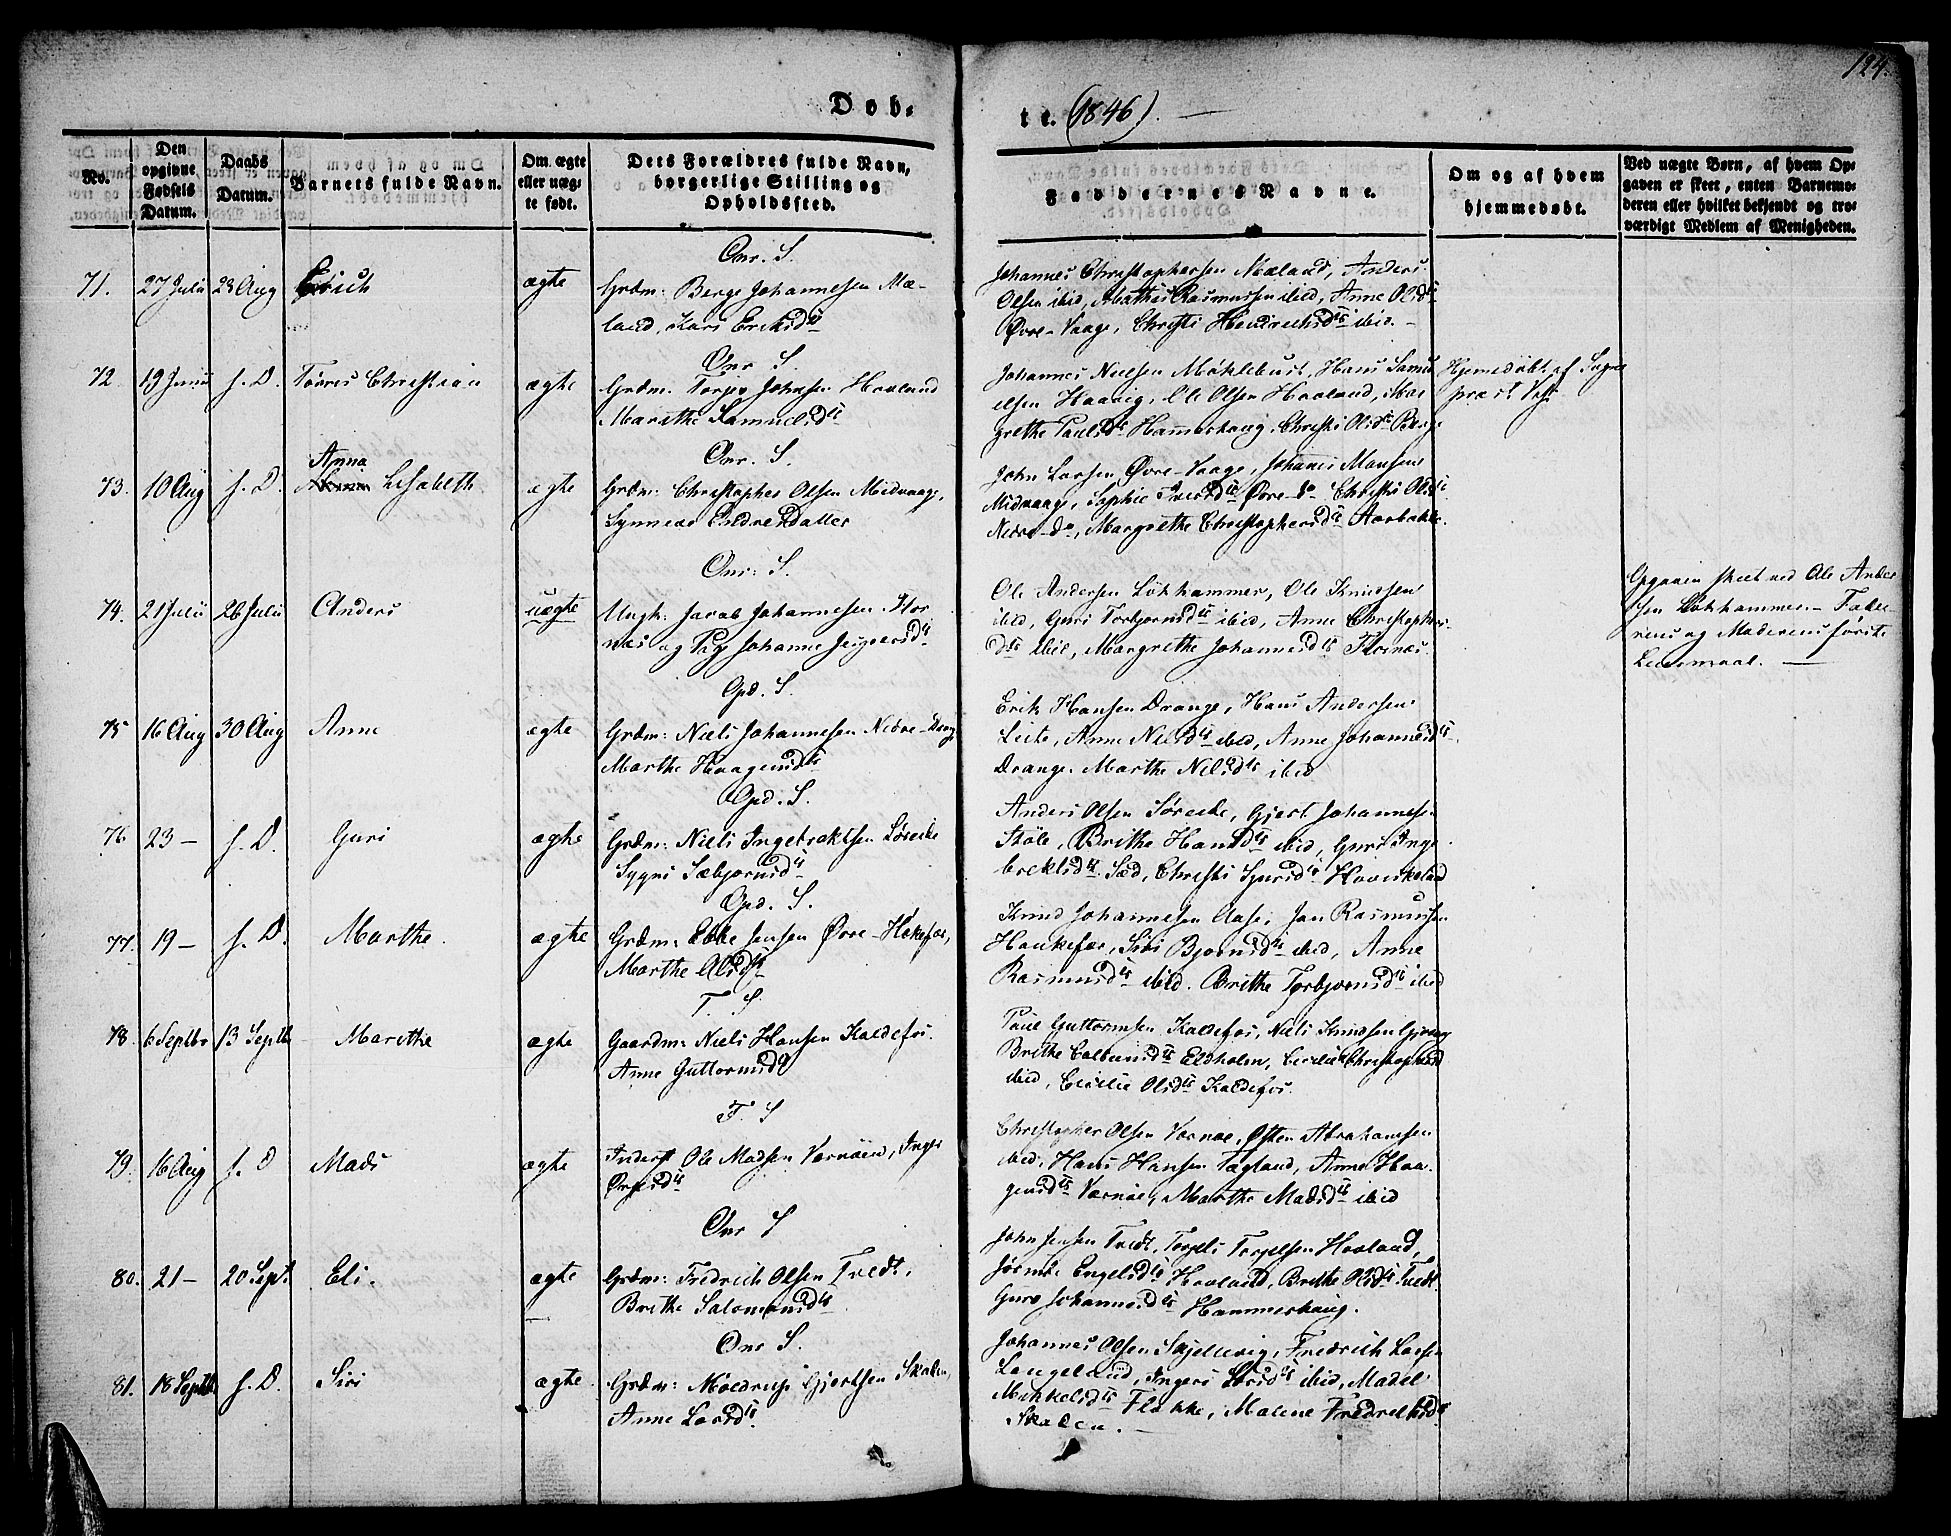 124.
Døb-
te. (1846). —
No.
Den opgivne Fødsels Datum.
Daabs Datum.
Barnets fulde Navn.
Om ægte eller uægte født.
Dets Forældres fulde Navn, borgerlige Stilling og Opholdssted.
Faddernes Navne.
Om og af hvem hjemmedøbt.
Ved uægte Børn, af hvem Opgaven er skeet, enten Barnemoderen eller hvilket bekjendt og troværdigt Medlem af Menigheden.
Onr. S.
71. 27 Julii 23 Aug Erich ægte Grdm: Berge Johannesen Mæ-
land, Kari Eriksdtr
Johannes Christophersen Mæland, Anders
Olsen ibid, Mathis Rasmussen ibid, Anne Olsdtr
Øvre-Vaage, Christi Hendrichsdtr ibid. -
Onr S.
72. 19 Junii s. D. Tørres Christian ægte Grdm: Torjer Johnsen Haaland
Marithe Samuelsdtr
Johannes Nielsen Møklebust, Hans Samu
elsen Haavig, Ole Olsen Haaland, Mar
grethe Paulsdtr Hammerhaug, Christi Olsdtr Berge
Hjemedøbt af Sogne
præst
Onr. S.
Anna
73. 10 Aug s. D. Lisabeth ægte Grdm: Christopher Olsen Midvaage,
Synneve Endresdatter
John Larsen Øvre-Vaage, Johannes Monsen
Midvaage, Sophie Iversdtr Øvre-do Christi Olsdtr
Nedre-do, Margrethe Christophersdtr Aarbakke.
Onr: S.
74. 21 Julii 26 Julii Anders uægte Ungk: Jacob Johannesen Flor
næs og Pig Johanne Ingversdtr
Ole Andersen Løkhammer, Ole Knudsen
ibid, Guri Torbjørnsdtr ibid, Anne Christophers-
dtr ibid, Margrethe Johannesdtr Flornæs.
Opgaven skeet ved Ole Ander
sen Løkhammer - Fade-
rens og Moderens første
Leiermaal. —
Opd. S.
75 16 Aug 30 Aug Anne ægte Grdm: Niels Johannesen Nedre-Drange
Marthe Haagensdtr
Erik Hansen Drange, Hans Andersen
Leite, Anne Nilsdtr ibid, Anne Johannesdtr
Drange. Marthe Nilsdtr ibid
Opd. S.
76 23 - s. D. Guri ægte Grdm: Niels Ingebrektsen Søreide
Sygni Sæbjørnsdtr
Anders Olsen Søreide, Gjert Johannesen
Støle, Brithe Hansdtr ibid, Guri Inge
brektsdtr. Sæd, Christi Sjursdtr
Opd. S.
77. 19 - s. D. Marthe. ægte Grdm: Jensen Øvre-Hökefær,
Marthe Olsdtr
Knud Johannesen Aase, Jan Rasmussen
Haukefær, Siri Bjørnsdtr ibid, Anne
Rasmusdtr ibid. Brithe Torbjørnsdtr ibid
T. S.
78. 6 Septbr 13 Septb Marithe ægte Gaardm: Niels Hansen Kaldefos.
Anne Guttormsdtr
Paul Guttormsen Kaldefos, Niels Knudsen
Brithe Eldholm, Cecilie Christophersd
ibid, Cecilie Olsdtr Kaldefos.
T. S
79. 16 Aug s. D Mads ægte Inderst Ole Madsen Værnøen, Inger
Christopher Olsen Værnøe, Østen Abrahamsen
ibid, Hans Hansen Vagland, Anne Haa-
gensdtr Værnøe, Marthe Madsdtr ibid
Onr S
80. 21 - 20 Sept. Eli. ægte Grdm: Fredrich Olsen Tvedt,
Brithe Salomonsdtr
John Jensen Tvedt, Torgils Torgilsen Haaland,
Engelsdtr Haaland, Brithe Olsdtr Tvedt
Guro Johannesdtr Hammerhaug.
Onr S.
81. 18 Septbr s. D. Siri ægte. Grdm: Mældrup Gjertsen Skaalen,
Anne Larsdtr
Johannes Olsen Skjellevig, Fredrich Larsen
Langeland, Ingeri Larsdtr ibid, Madel
Mikkelsdtr Flokke, Malene Fredrichsdtr
Skaalen. —